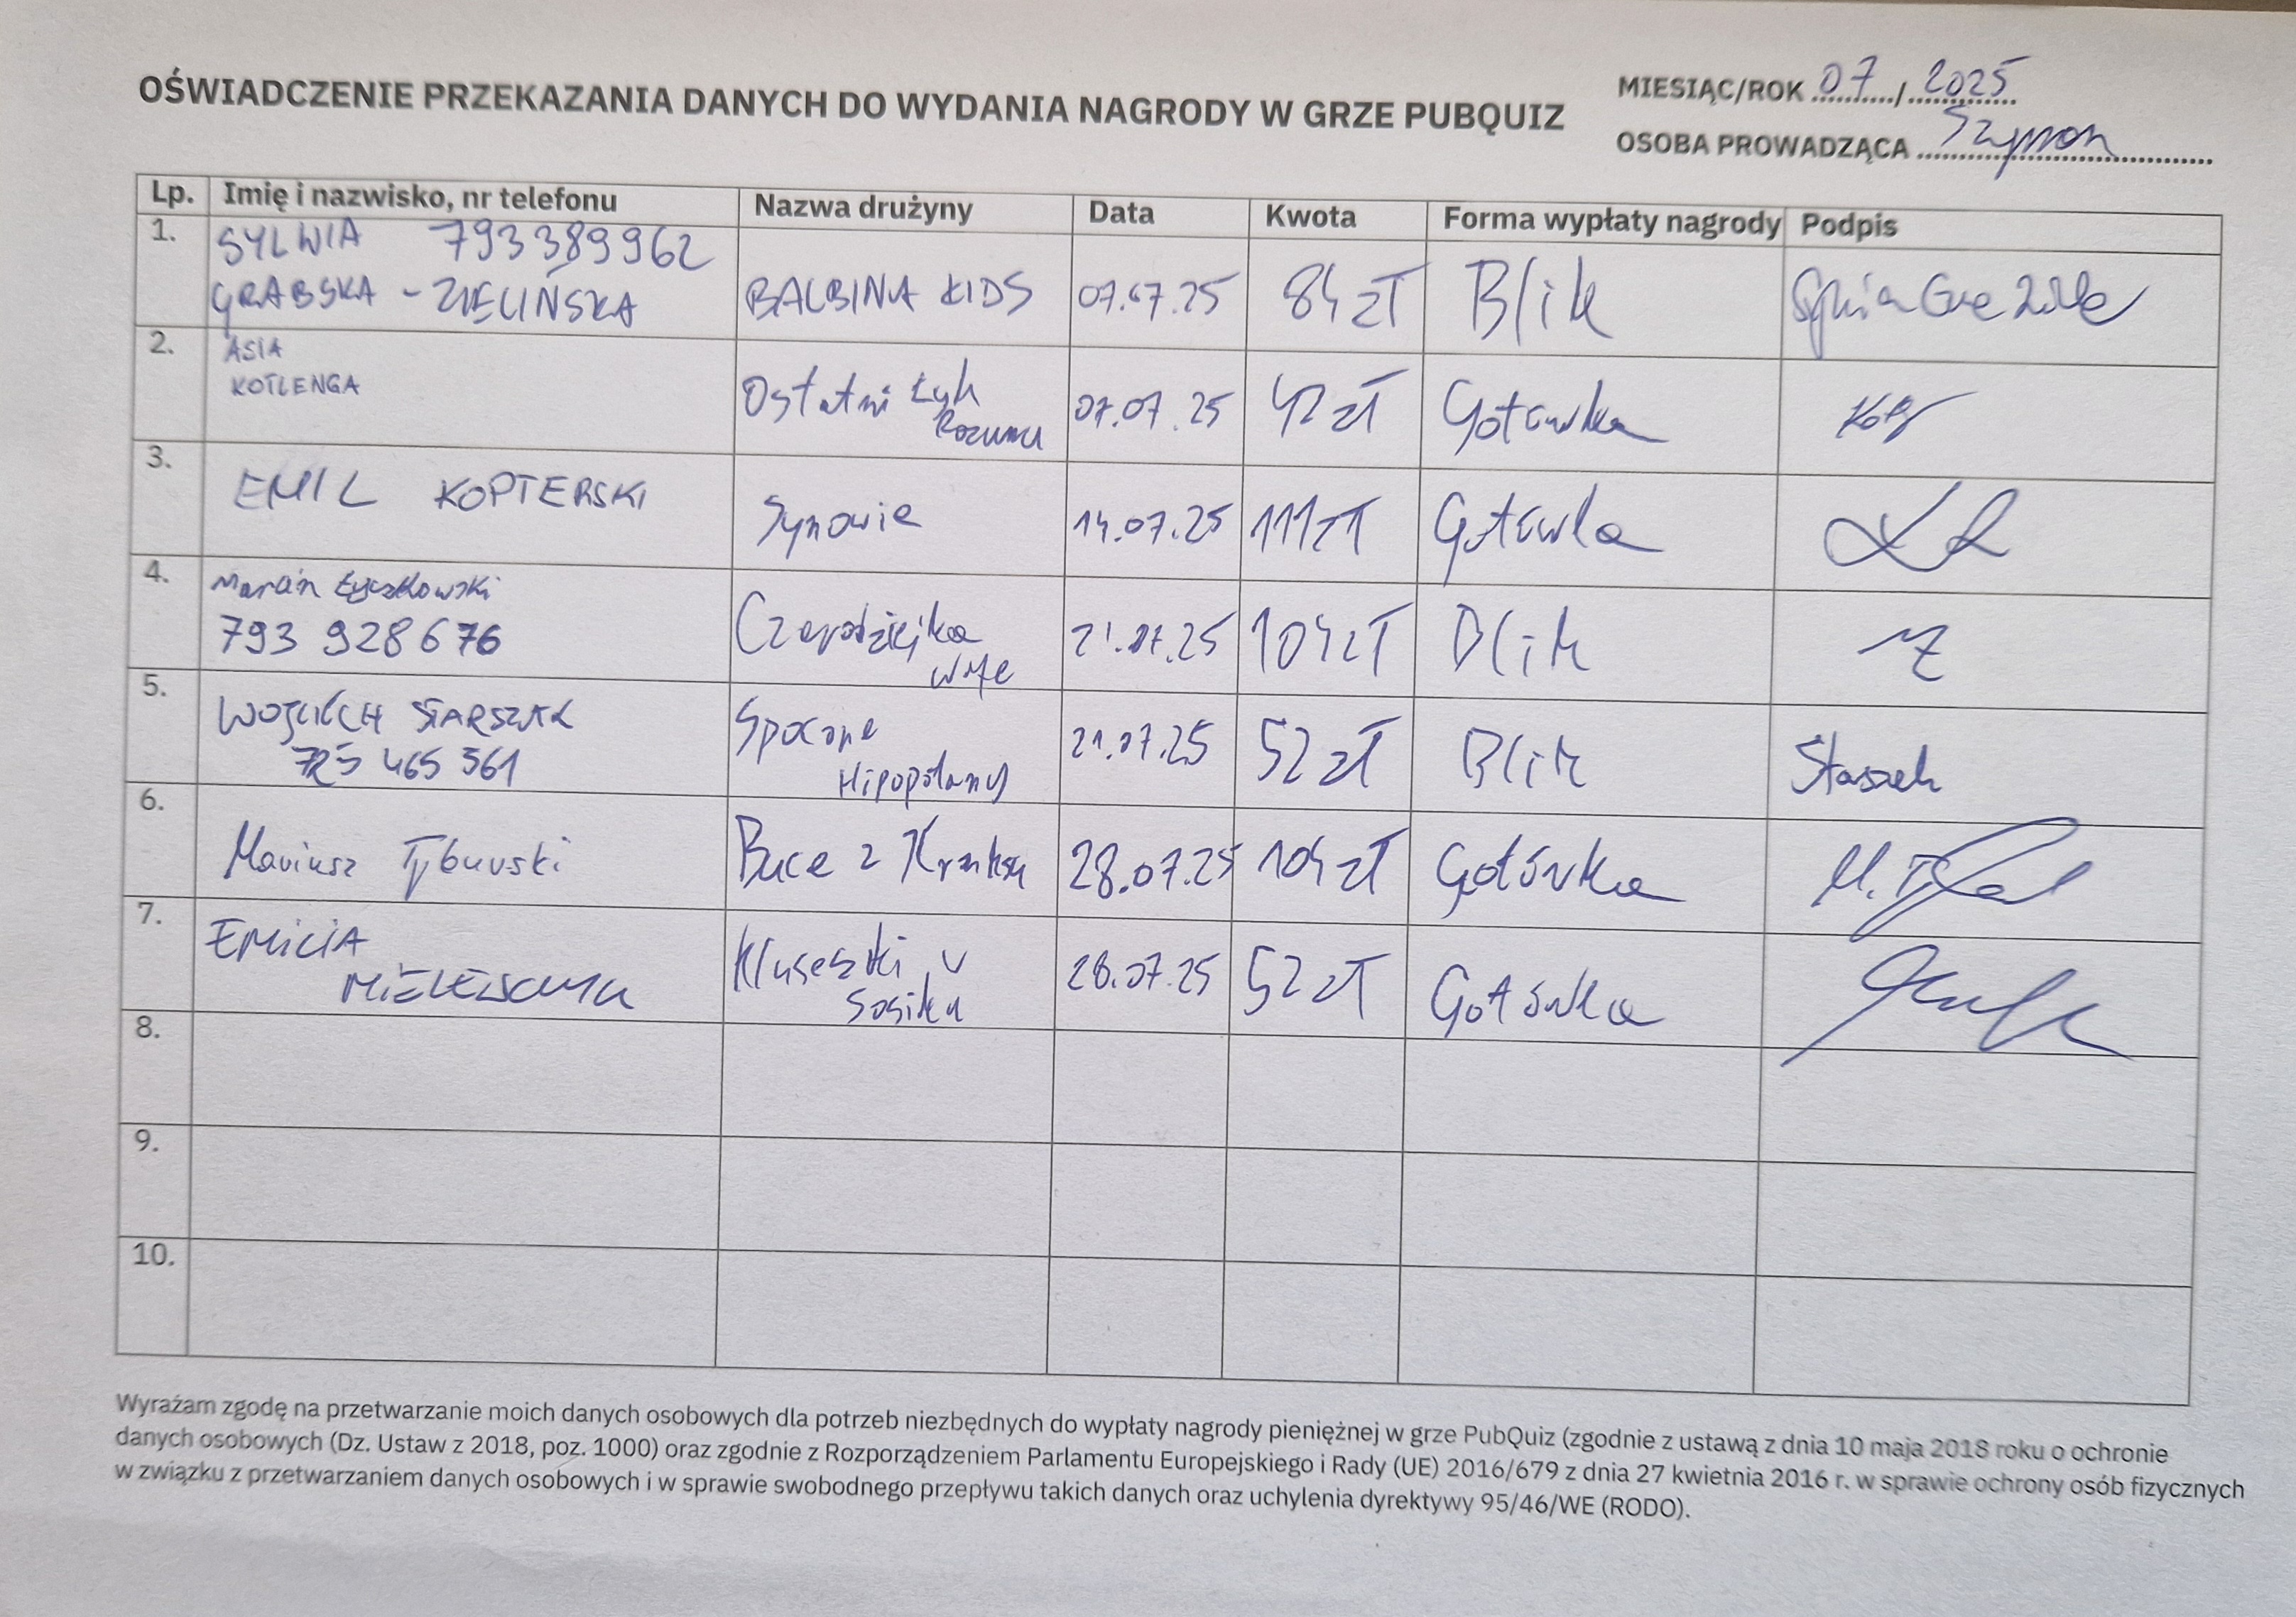 OŚWIADCZENIE PRZEKAZANIA DANYCH DO WYDANIA NAGRODY W GRZE PUBQUIZ
MIESIĄC/ROK 07/2025
OSOBA PROWADZĄCA Szymon
Lp. Imię i nazwisko, nr telefonu Nazwa drużyny Data Kwota Forma wypłaty nagrody Podpis
1. SYLWIA 793389962
GRABSKA-ZIELIŃSKA BALBINA KIDS 07.07.25 84 zł Blik
2. ASIA
KOTLENGA Ostatni Łyk 07.07.25 42 zł Gotówka
Rozumu
3. EMIL KOPTERSKI Synowie 14.07.25 111 zł Gotówka
4. Marcin Łyczkowski
793 928 676 Czarodziejka 21.07.25 104 zł Blik
5. WOJCIECH Spocone 21.07.25 52 zł Blik Staszek
465 561 Hipopotamy
6. Mariusz Tyburski Buce z Kranksu 28.07.25 104 zł Gotówka
7. EMILIA Kluseczki w 28.07.25 52 zł Gotówka
Sosiku
8.
9.
10.
Wyrażam zgodę na przetwarzanie moich danych osobowych dla potrzeb niezbędnych do wypłaty nagrody pieniężnej w grze PubQuiz (zgodnie z ustawą z dnia 10 maja 2018 roku o ochronie
danych osobowych (Dz. Ustaw z 2018, poz. 1000) oraz zgodnie z Rozporządzeniem Parlamentu Europejskiego i Rady (UE) 2016/679 z dnia 27 kwietnia 2016 r. w sprawie ochrony osób fizycznych
w związku z przetwarzaniem danych osobowych i w sprawie swobodnego przepływu takich danych oraz uchylenia dyrektywy 95/46/WE (RODO).